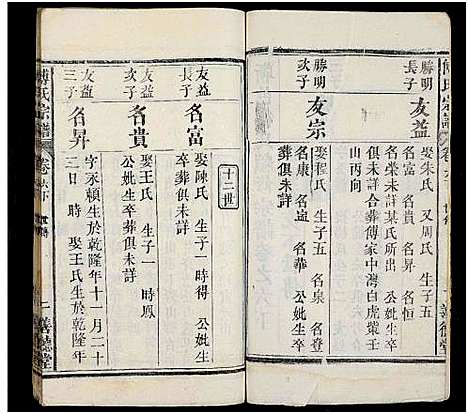 傅氏宗譜
卷六下 世傳
善德堂
勝明
長子
友益
娶朱氏 又周氏 生子五
名富 名貴 名昇 名恒
名榮未詳某氏所出 公妣生卒
俱未詳合葬傅家中灣白虎業壬
山丙向
勝明
次子
友宗
娶程氏 生子五 名泉 名登
名康 名遠 名華 公妣生卒
葬俱未詳
十二世
友益
長子
名富
娶陳氏 生子一時得 公妣生
卒葬俱未詳
友益
次子
名貴
娶王氏 生子一 時鳳
公妣生卒葬俱未詳
友益
三子
名昇
字永頫生於乾隆年十一月二十
二日 時 娶王氏生於乾隆年
傅氏宗譜
卷六下 世傳
二 善德堂